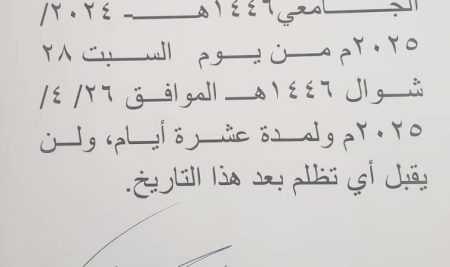 الجامعي ١٤٤٦هـ - ٢٠٢٤/
٢٠٢٥م من يوم السبت ٢٨
شوال ١٤٤٦هـ الموافق ٢٦/ ٤/
٢٠٢٥م ولمدة عشرة أيام، ولن
يقبل أي تظلم بعد هذا التاريخ.